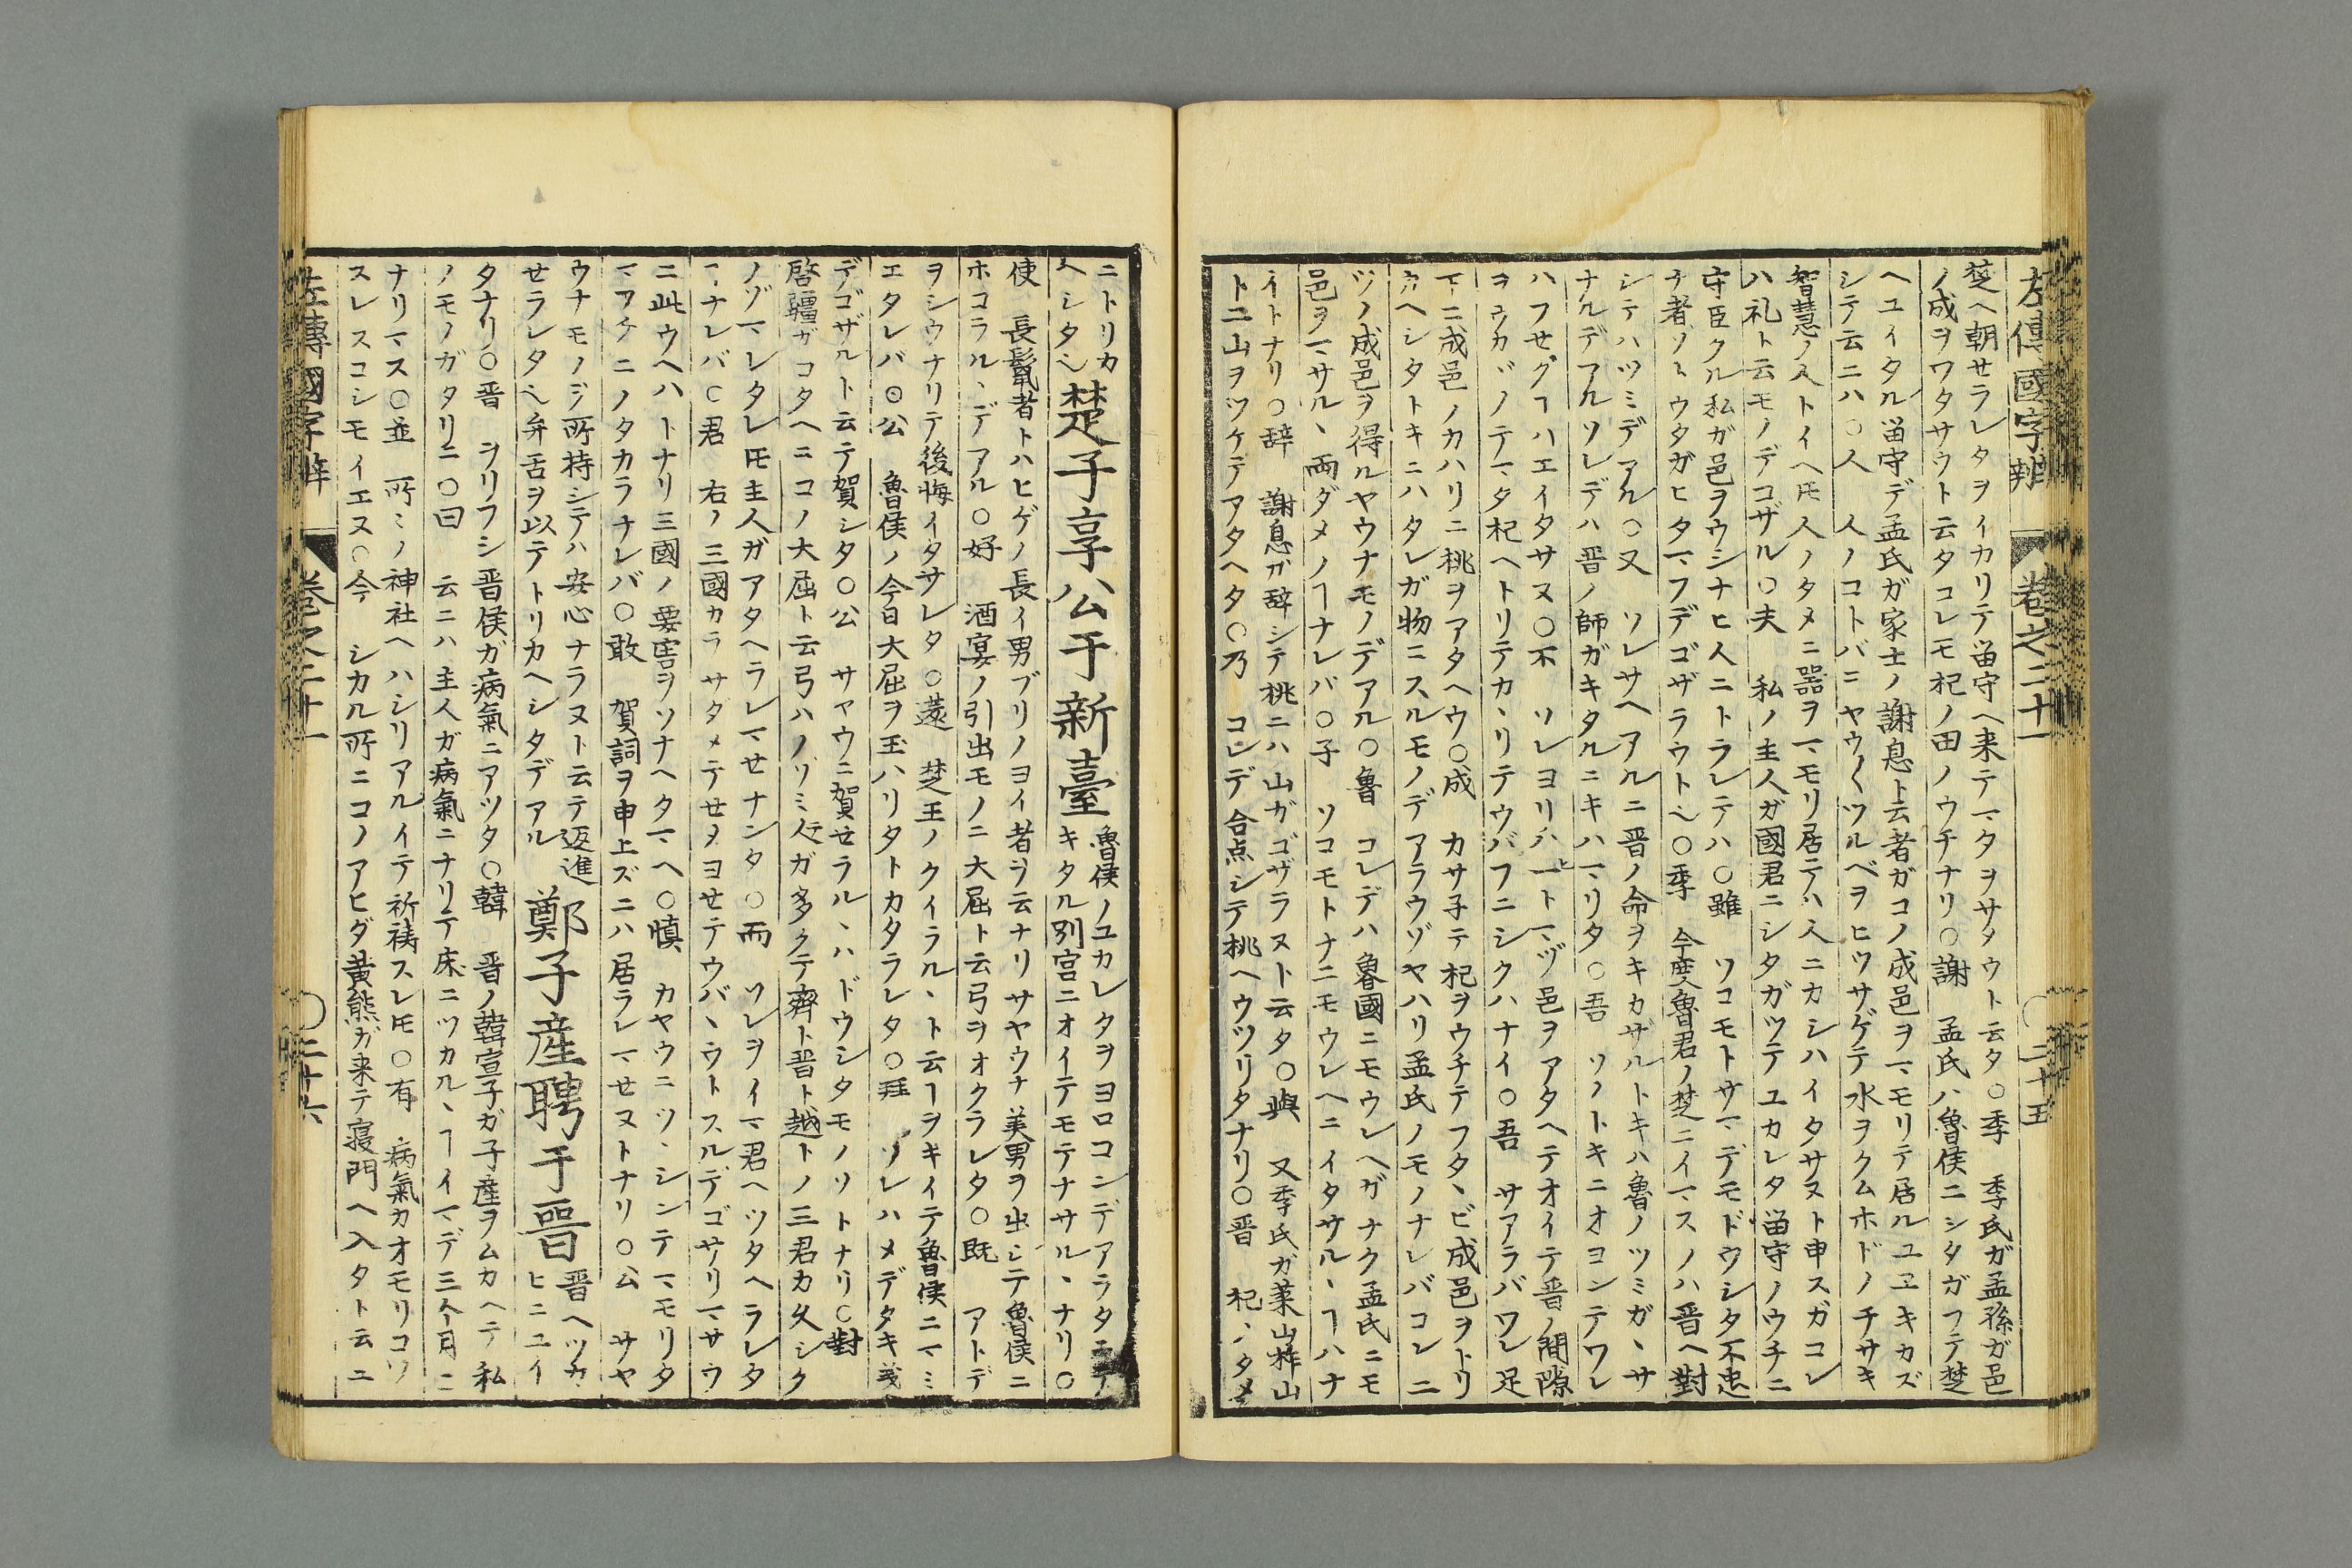 左傳國字辨 卷之二十一 ○二十五
楚ヘ朝セラレタヲイカリテ留守ヘ来テマタヲサメウト云タ○季 季氏ガ孟孫ガ邑
ノ成ヲワタサウト云タコレモ杞ノ田ノウチナリ○謝 孟氏ハ魯侯ニシタガフテ楚
ヘユイタル留守デ孟氏ガ家士ノ謝息ト云者ガコノ成邑ヲマモリテ居ルユヱキカズ
シテ云ニハ○人 人ノコトバニヤウ〱ツルベヲヒツサゲテ水ヲクムホドノチサキ
智慧ノ人トイヘ𪜈人ノタメニ器ヲマモリ居テハ人ニカシハイタサヌト申スガコレ
ハ礼ト云モノデコザル○夫 私ノ主人ガ國君ニシタガツテユカレタ留守ノウチニ
守臣タル私ガ邑ヲウシナヒ人ニトラレテハ○雖 ソコモトサマデモドウシタ不忠
ナ者ゾトウタガヒタマフデゴザラウト也○季 今度魯君ノ楚ニイマスノハ晋ヘ對
シテハツミデアル○又 ソレサヘアルニ晋ノ命ヲキカザルトキハ魯ノツミガヽサ
ナルデアルソレデハ晋ノ師ガキタルニキハマリタ○吾 ソノトキニオヨンテワレ
ハフセグヿハエイタサヌ○不 ソレヨリハ一トマヅ邑ヲアタヘテオイテ晋ノ間隙
ヲウカヾノテマタ杞ヘトリテカヽリテウバフニシクハナイ○吾 サアラバワレ足
下ニ成邑ノカハリニ桃ヲアタヘウ○成 カサ子テ杞ヲウチテフタヽビ成邑ヲトリ
カヘシタトキニハタレガ物ニスルモノデアラウゾヤハリ孟氏ノモノナレバコレ二
ツノ成邑ヲ得ルヤウナモノデアル○魯 コレデハ魯國ニモウレヘガナク孟氏ニモ
邑ヲマサルヽ両ダメノヿナレバ○子 ソコモトナニモウレヘニイタサルヽヿハナ
イトナリ○辞 謝息ガ辞シテ桃ニハ山ガゴザラヌト云タ○與 又季氏ガ莱山柞山
ト二山ヲツケテアタヘタ○乃 コレデ合点シテ桃ヘウツリタナリ○晋 杞ノタメ
ニトリカ
ヘシタ也 楚子享公于新臺 魯侯ノユカレタヲヨロコンデアラタニ
キタル別宮ニオイテモテナサルヽナリ○
使 長鬣者トハヒゲノ長イ男ブリノヨイ者ヲ云ナリサヤウナ美男ヲ出シテ魯侯ニ
ホコラルヽデアル○好 酒宴ノ引出モノニ大屈ト云弓ヲオクラレタ○既 アトデ
ヲシウナリテ後悔イタサレタ○薳 楚王ノクイラルヽト云ヿヲキイテ魯侯ニマミ
エタレバ○公 魯侯ノ今日大屈ヲ玉ハリタトカタラレタ○拜 ソレハメデタキ義
デゴザルト云テ賀シタ○公 サヤウニ賀セラルヽハドウシタモノソトナリ○對
啓疆ガコタヘニコノ大屈ト云弓ハノゾミ人ガ多クテ齊ト晋ト越トノ三君カ久シク
ノゾマレタレ𪜈主人ガアタヘラレマセナンタ○而 ソレヲイマ君ヘツタヘラレタ
マナレバ○君 右ノ三國カラサダメテセメヨセテウバヽウトスルデゴサリマサウ
ニ此ウヘハトナリ三國ノ要害ヲソナヘタマヘ○慎 カヤウニツヽシンテマモリタ
マフケニノタカラナレバ○敢 賀詞ヲ申上ズニハ居ラレマセヌトナリ○公 サヤ
ウナモノジ所持シテハ安心ナラヌト云テ返進
セラレタ也弁舌ヲ以テトリカヘシタデアル 鄭子産聘于晋 晋ヘツカ
ヒニユイ
タナリ○晋 ヲリフシ晋侯ガ病氣ニアツタ○韓 晋ノ韓宣子ガ子産ヲムカヘテ私
ノモノガタリニ○曰 云ニハ主人ガ病氣ニナリテ床ニツカルヽヿイマデ三个月ニ
ナリマス○並 所〻ノ神社ヘハシリアルイテ祈祷スレ𪜈○有 病氣カオモリコソ
スレスコシモイエヌ○今 シカル所ニコノアヒダ黄熊ガ来テ寝門ヘ入タト云ニ
左傳國字辨 卷之二十一 ○二十六